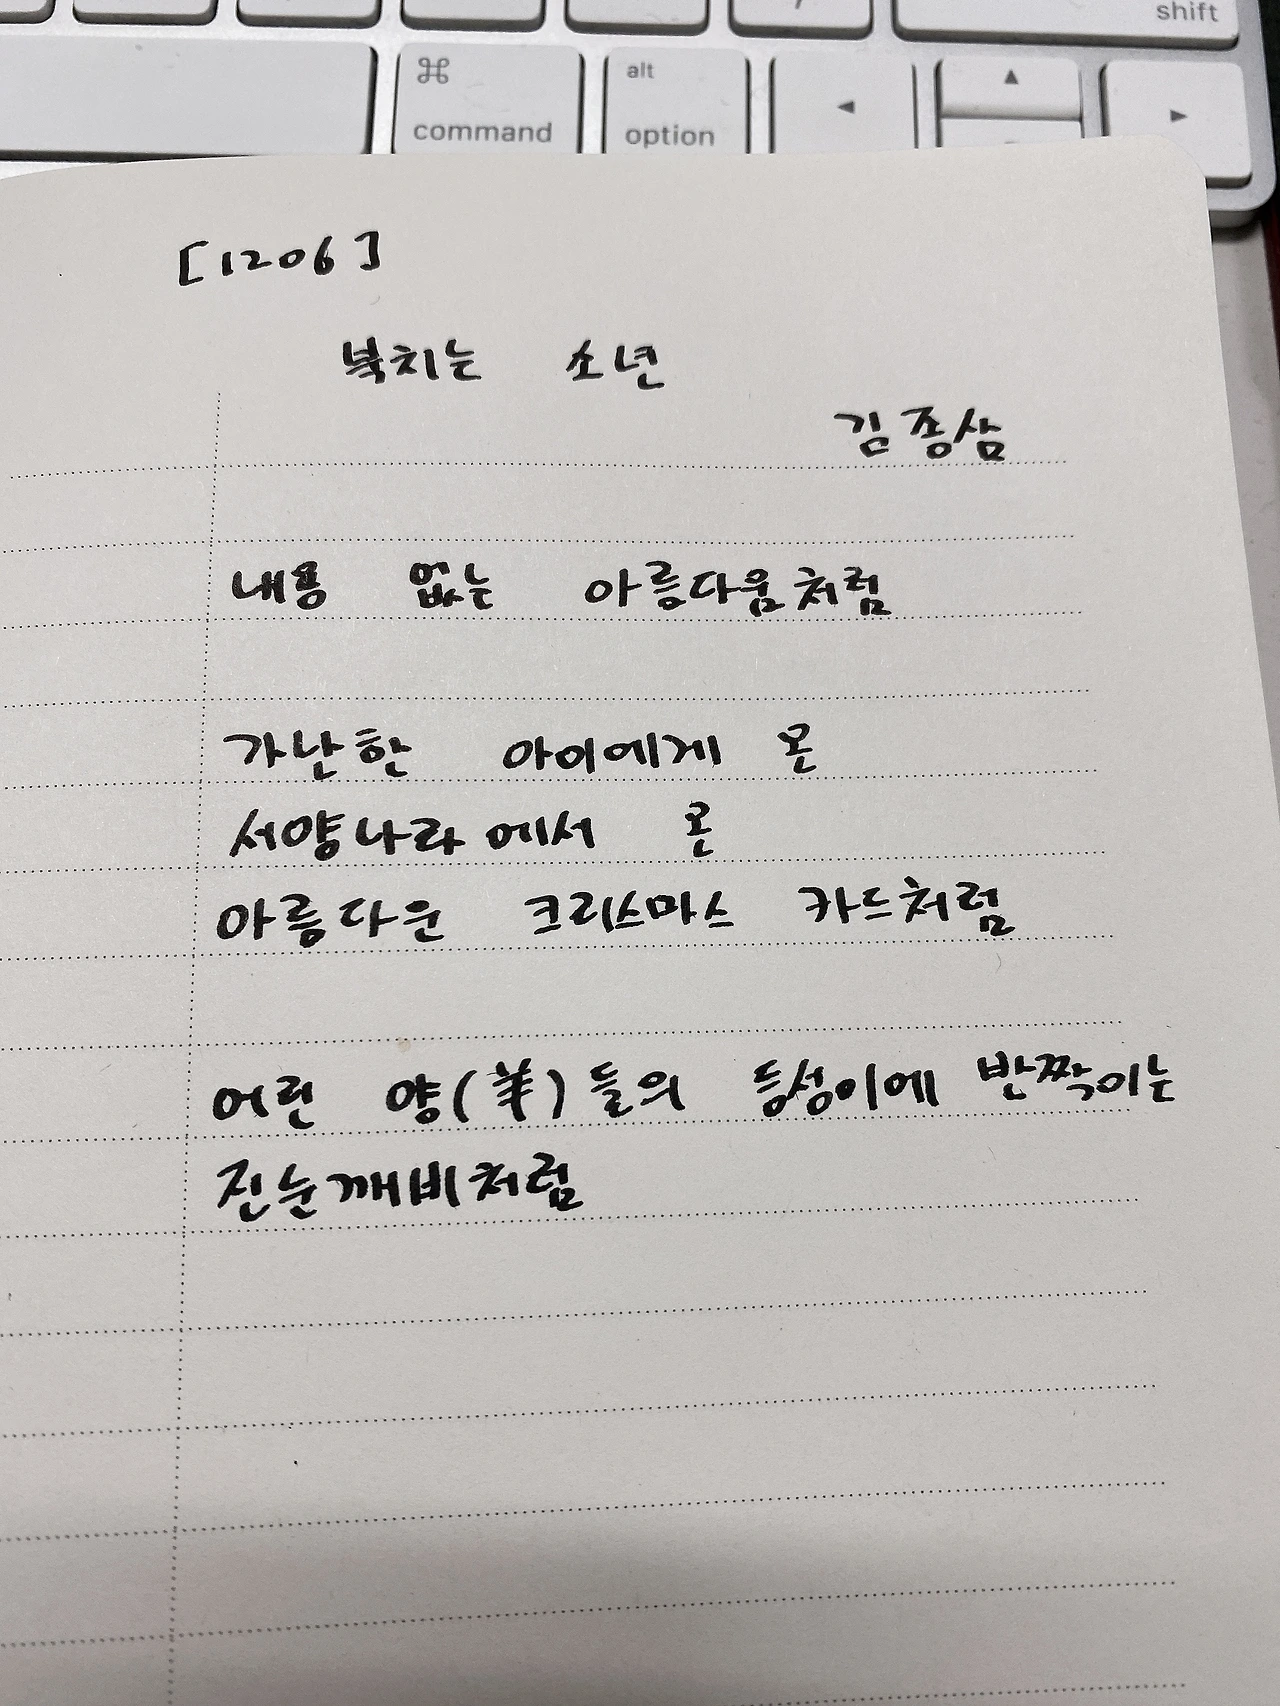 shift
⌘ alt
command option
[1206]
북치는 소년
김종삼
내용 없는 아름다움처럼
가난한 아이에게 온
서양나라에서 온
아름다운 크리스마스 카드처럼
어린 양(羊)들의 등성이에 반짝이는
진눈깨비처럼